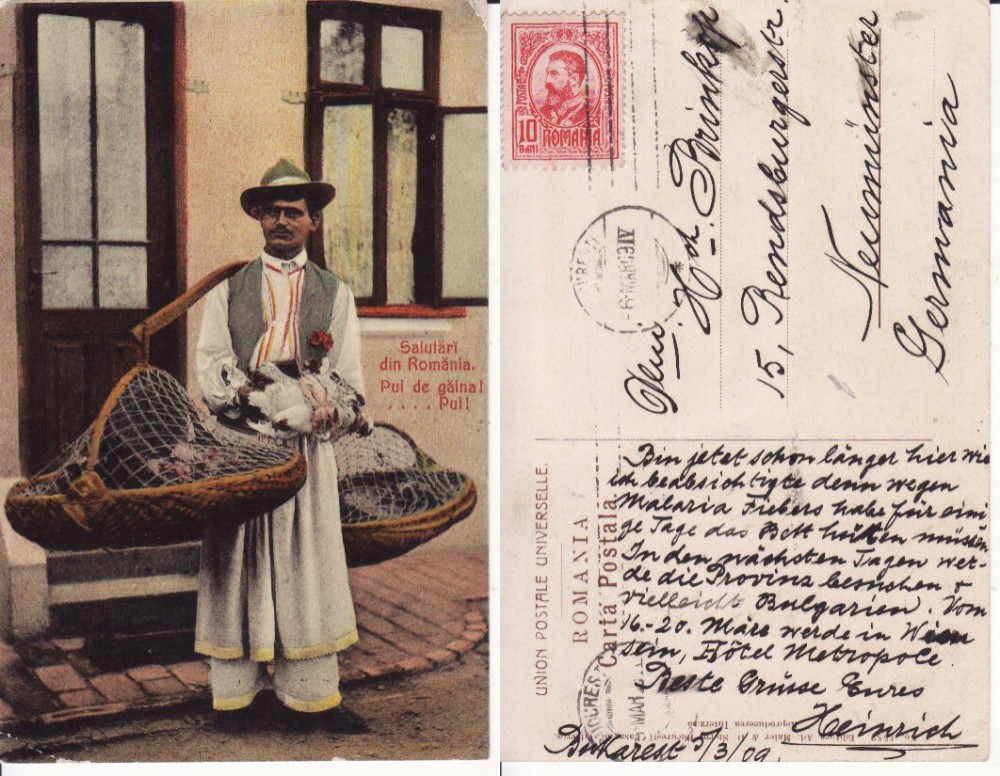 Salutări
din România.
Pui de găina!
. . . . Pui!
POSTALE
10
BANI
ROMANIA
-6 MAR 09 IV
Brinkop
15, Rendsburgerstr.
Neumünster
Germania
UNION POSTALE UNIVERSELLE.
ROMANIA
Carta Postala
Bin jetzt schon länger hier wie
ich beabsichtigte denn wegen
Malaria Fiebers habe für eini
ge Tage das Bett hüten müssen
In den nächsten Tagen wer-
de die Provinz besuchen +
vielleicht Bulgarien. Vom
16.-20. März werde in Wien
sein, Hôtel Metropole
Beste Grüsse Eures
Heinrich
Bukarest 5/3/09.
Ad. Maier & D. Stern, București
Reproducerea Interzisă